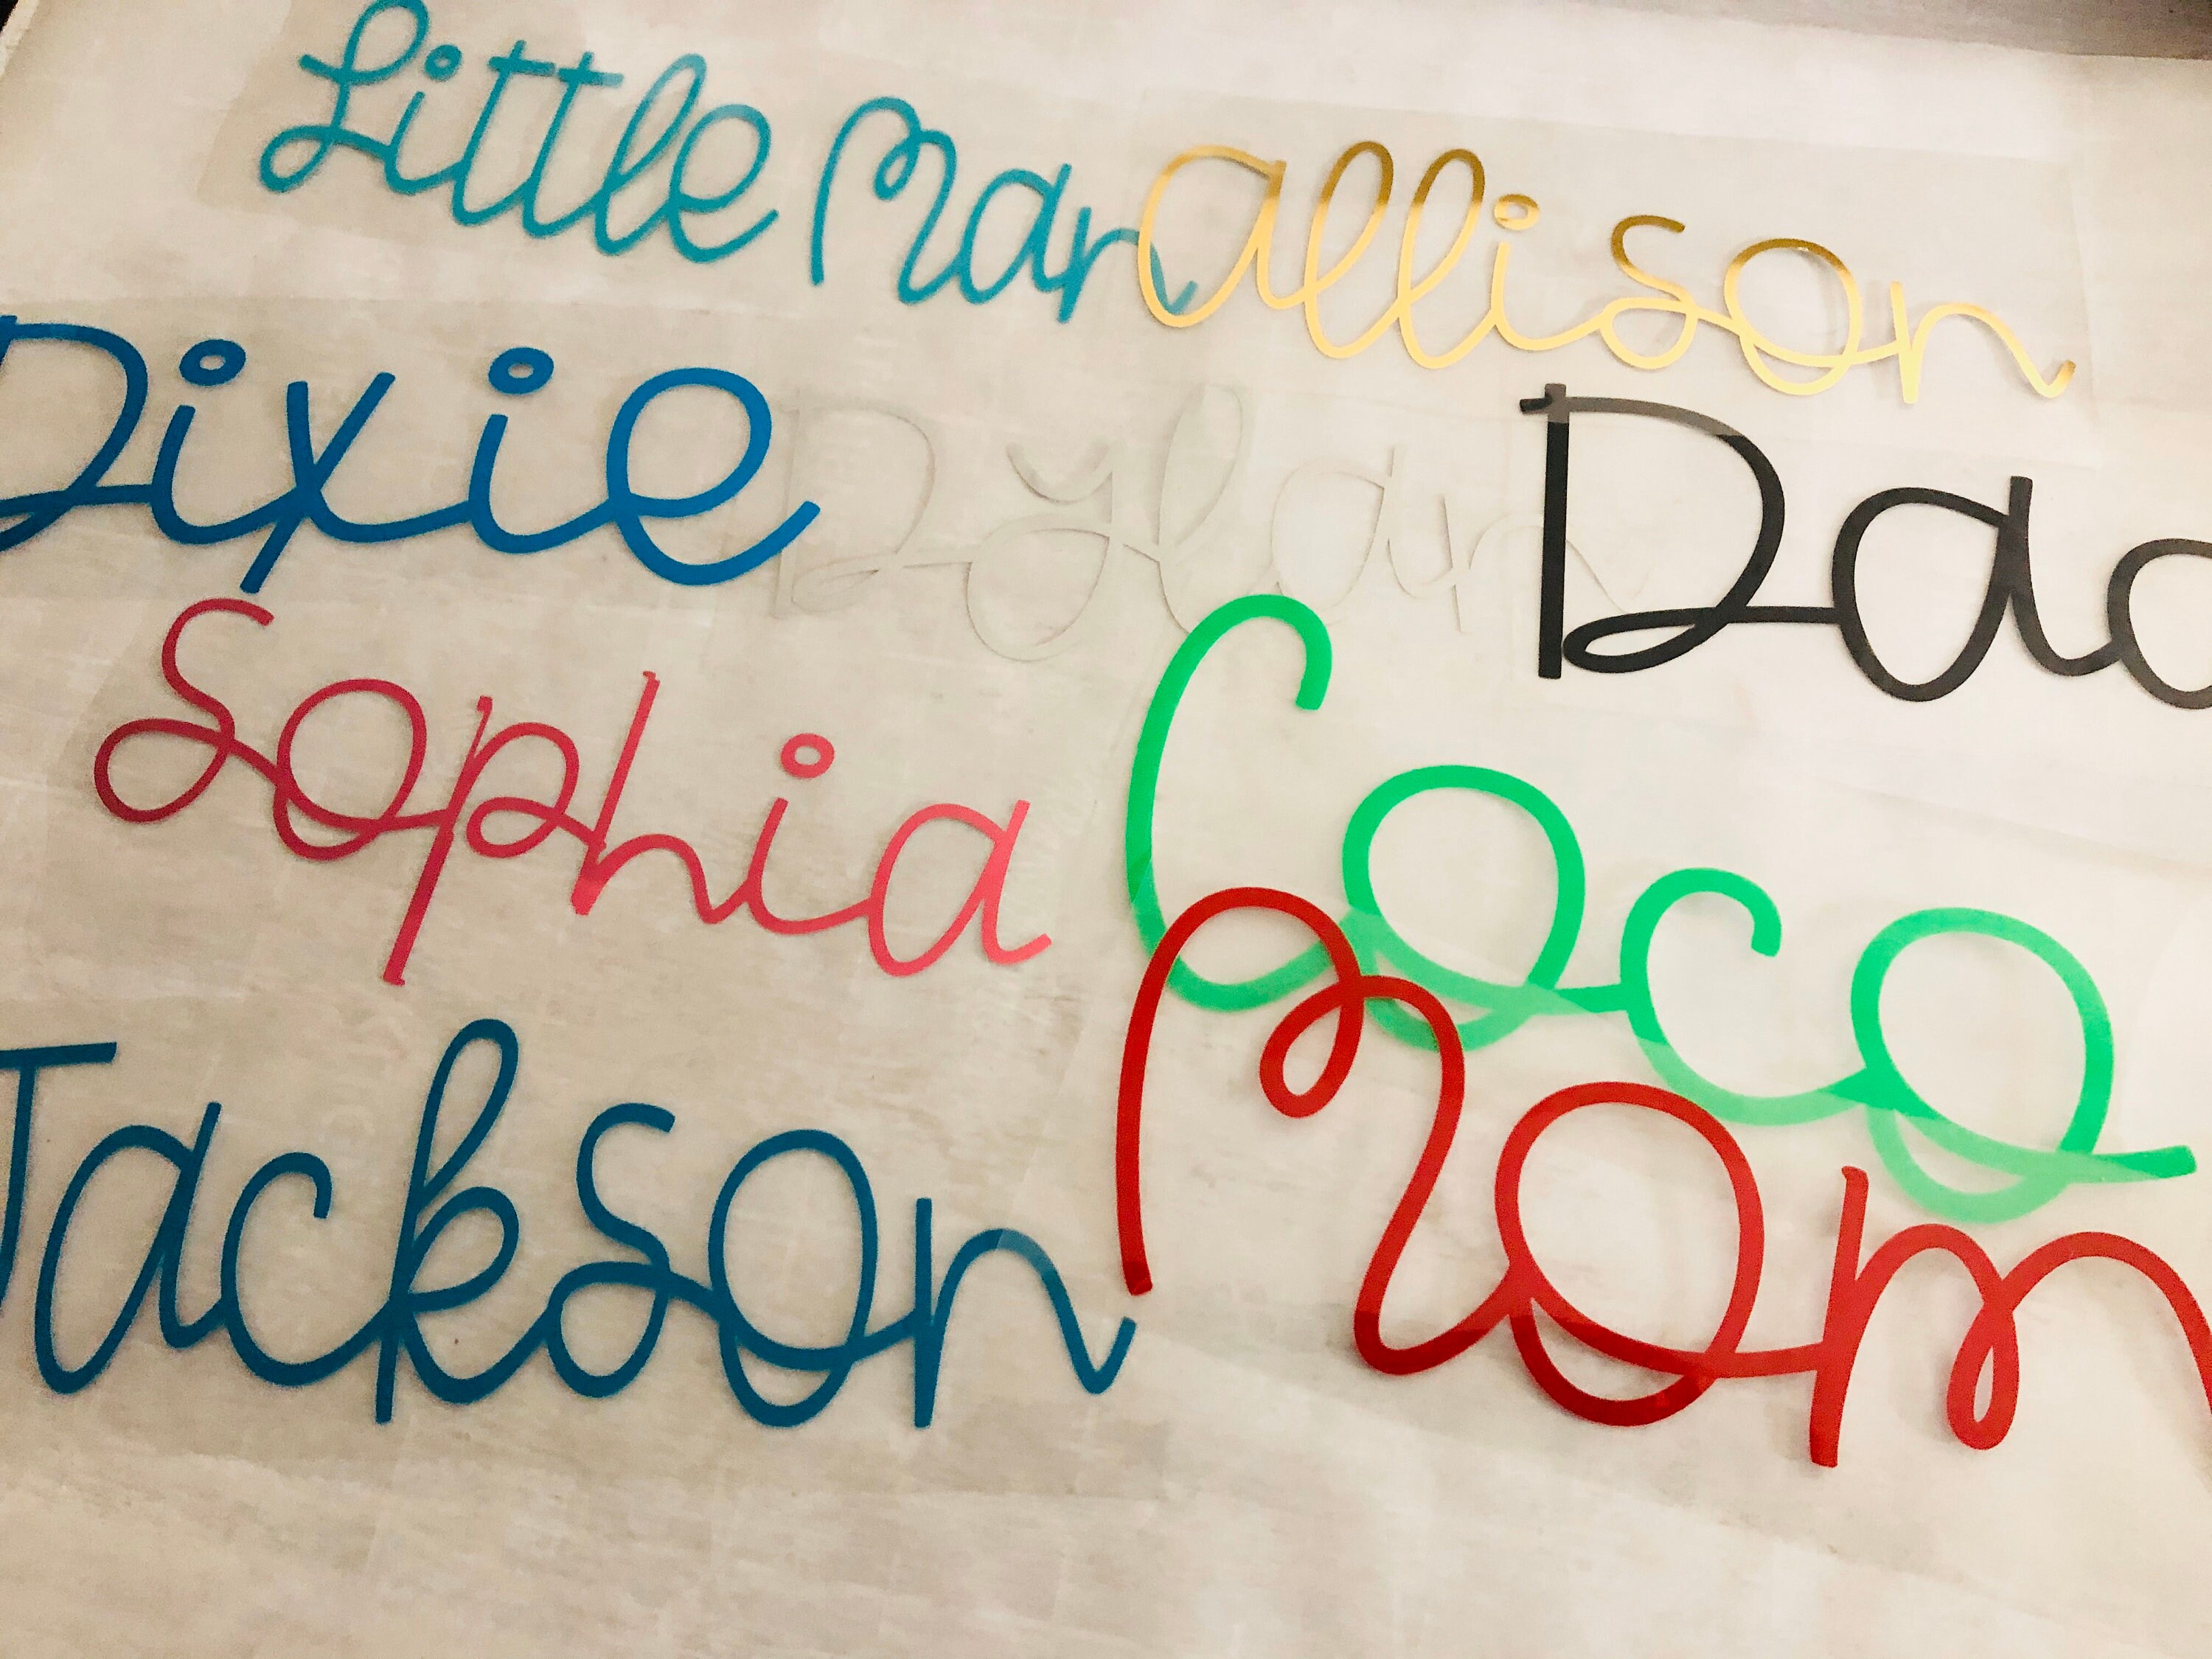 Little Man
allison
Dixie
Dylan
Dad
Sophia
Coco
Jackson
Mom